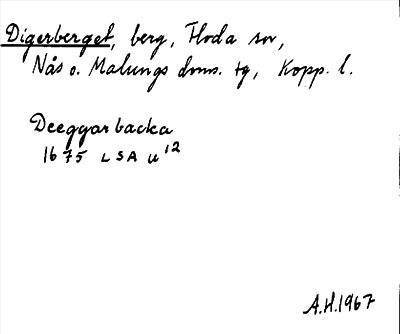 Digerberget, berg, Floda sn,
Nås o. Malungs doms. tg, Kopp. l.
Deeggar backa
1675 LSA U 12
A.H. 1967